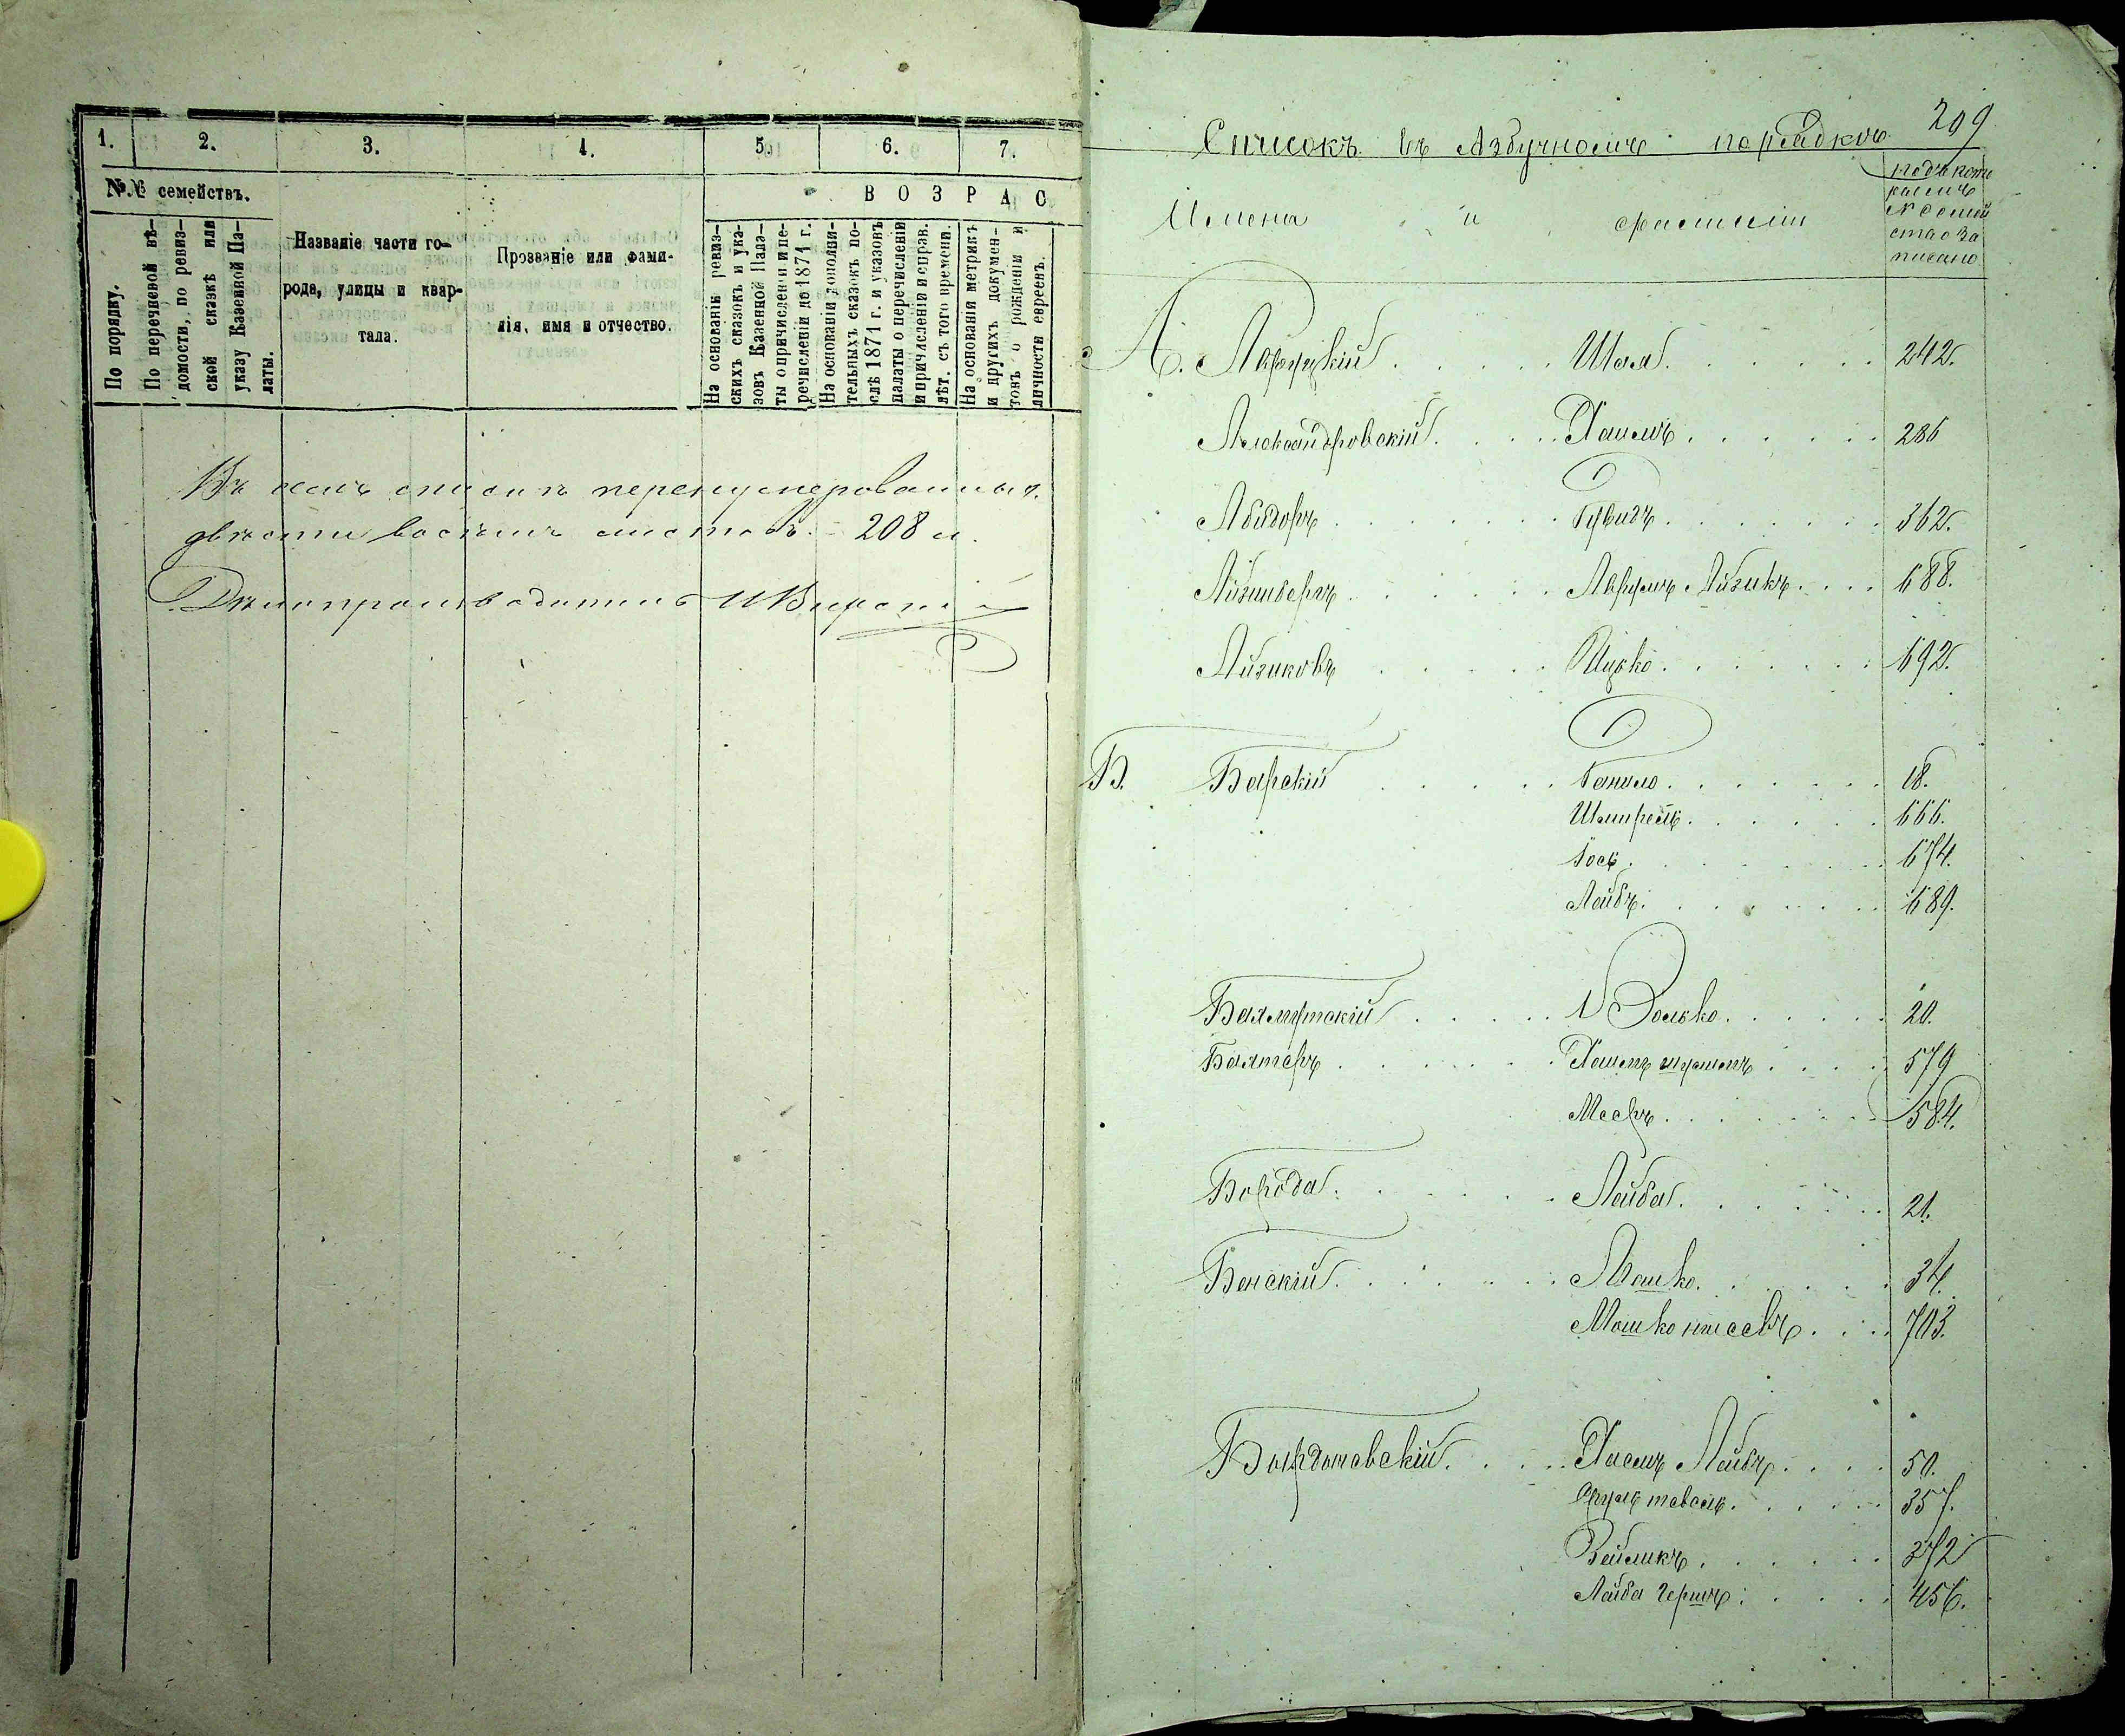 1. 2. 3. 4. 5. 6. 7.
№№ семействъ.
В О З Р А С
По порядку.
По перечневой вѣ-
домости, по ревиз-
ской сказкѣ или
указу Казенной Па-
латы.
Названіе части го-
рода, улицы и квар-
тала.
Прозваніе или фами-
лія, имя и отчество.
На основаніи ревиз-
скихъ сказокъ и ука-
зовъ Казенной Пала-
ты о причисленіи и пе-
речисленіи до 1871 г.
На основаніи дополни-
тельныхъ сказокъ по-
слѣ 1871 г. и указовъ
палаты о перечисленіи
и причисленіи и справ.
лѣт. съ того времени.
На основаніи метрикъ
и другихъ докумен-
товъ о рожденіи и
личности евреевъ.
Въ семъ списке перенумерованныхъ
двѣсти восемь листовъ. - 208 л.
Дѣлопроизводитель
209
Списокъ въ Азбучномъ порядкѣ
Имена и фамиліи
подъ кото
рымъ
№ семей
ство за
писано
А. Аврутскій Шая 242.
Александровскій Хаимъ 286
Абидоръ Гувидъ 362.
Айзинбергъ Аврумъ Айзикъ 688.
Айзиковъ Ицко 692.
Б. Барскій Данило 18.
666.
Іось 674.
Лейбъ 689.
Бахмутскій Волько 20.
579
Мееръ 584.
Борода Лейба 21.
Бенскій Мошко 34.
Мошко 703.
Лейбъ 50.
357.
Зейликъ 372
Лейба Гершъ 456.